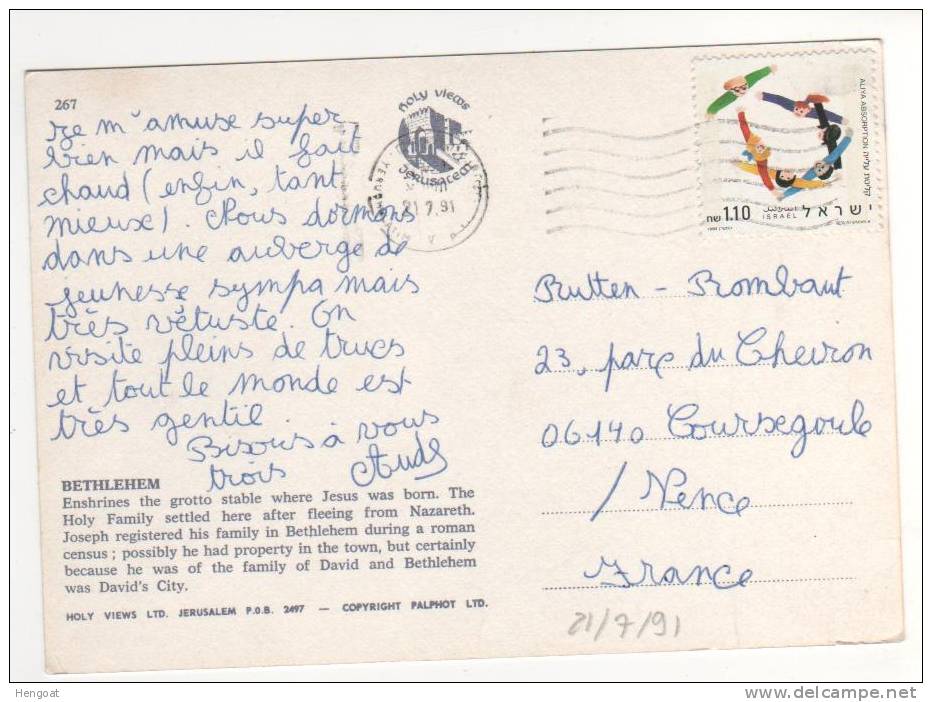 267
Je m'amuse super
bien mais il fait
chaud (enfin, tant
mieux). Nous dormons
dans une auberge de
jeunesse sympa mais
très vétuste. On
visite pleins de trucs
et tout le monde est
très gentil
Bisous à vous
trois Aude
BETHLEHEM
Enshrines the grotto stable where Jesus was born. The
Holy Family settled here after fleeing from Nazareth.
Joseph registered his family in Bethlehem during a roman
census; possibly he had property in the town, but certainly
because he was of the family of David and Bethlehem
was David's City.
HOLY VIEWS LTD. JERUSALEM P.O.B. 2497 — COPYRIGHT PALPHOT LTD.
holy views
JERUSALEM
21.7.91
ALIYA ABSORPTION קליטת עליה
1.10 ISRAEL ישראל
Rutten - Rombaut
23, parc du Cheiron
06140 Coursegoule
/ Vence
France
21/7/91
Hengoat
www.delcampe.net